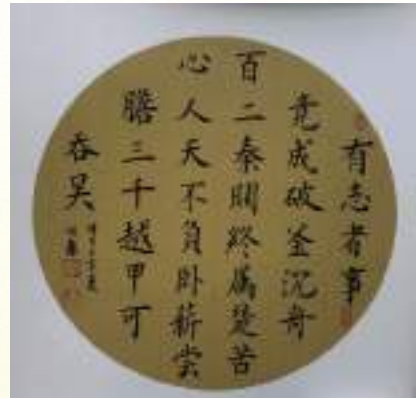 有志者事
竟成破釜沉舟
百二秦關終屬楚苦
心人天不負卧薪尝
膽三千越甲可
吞吴